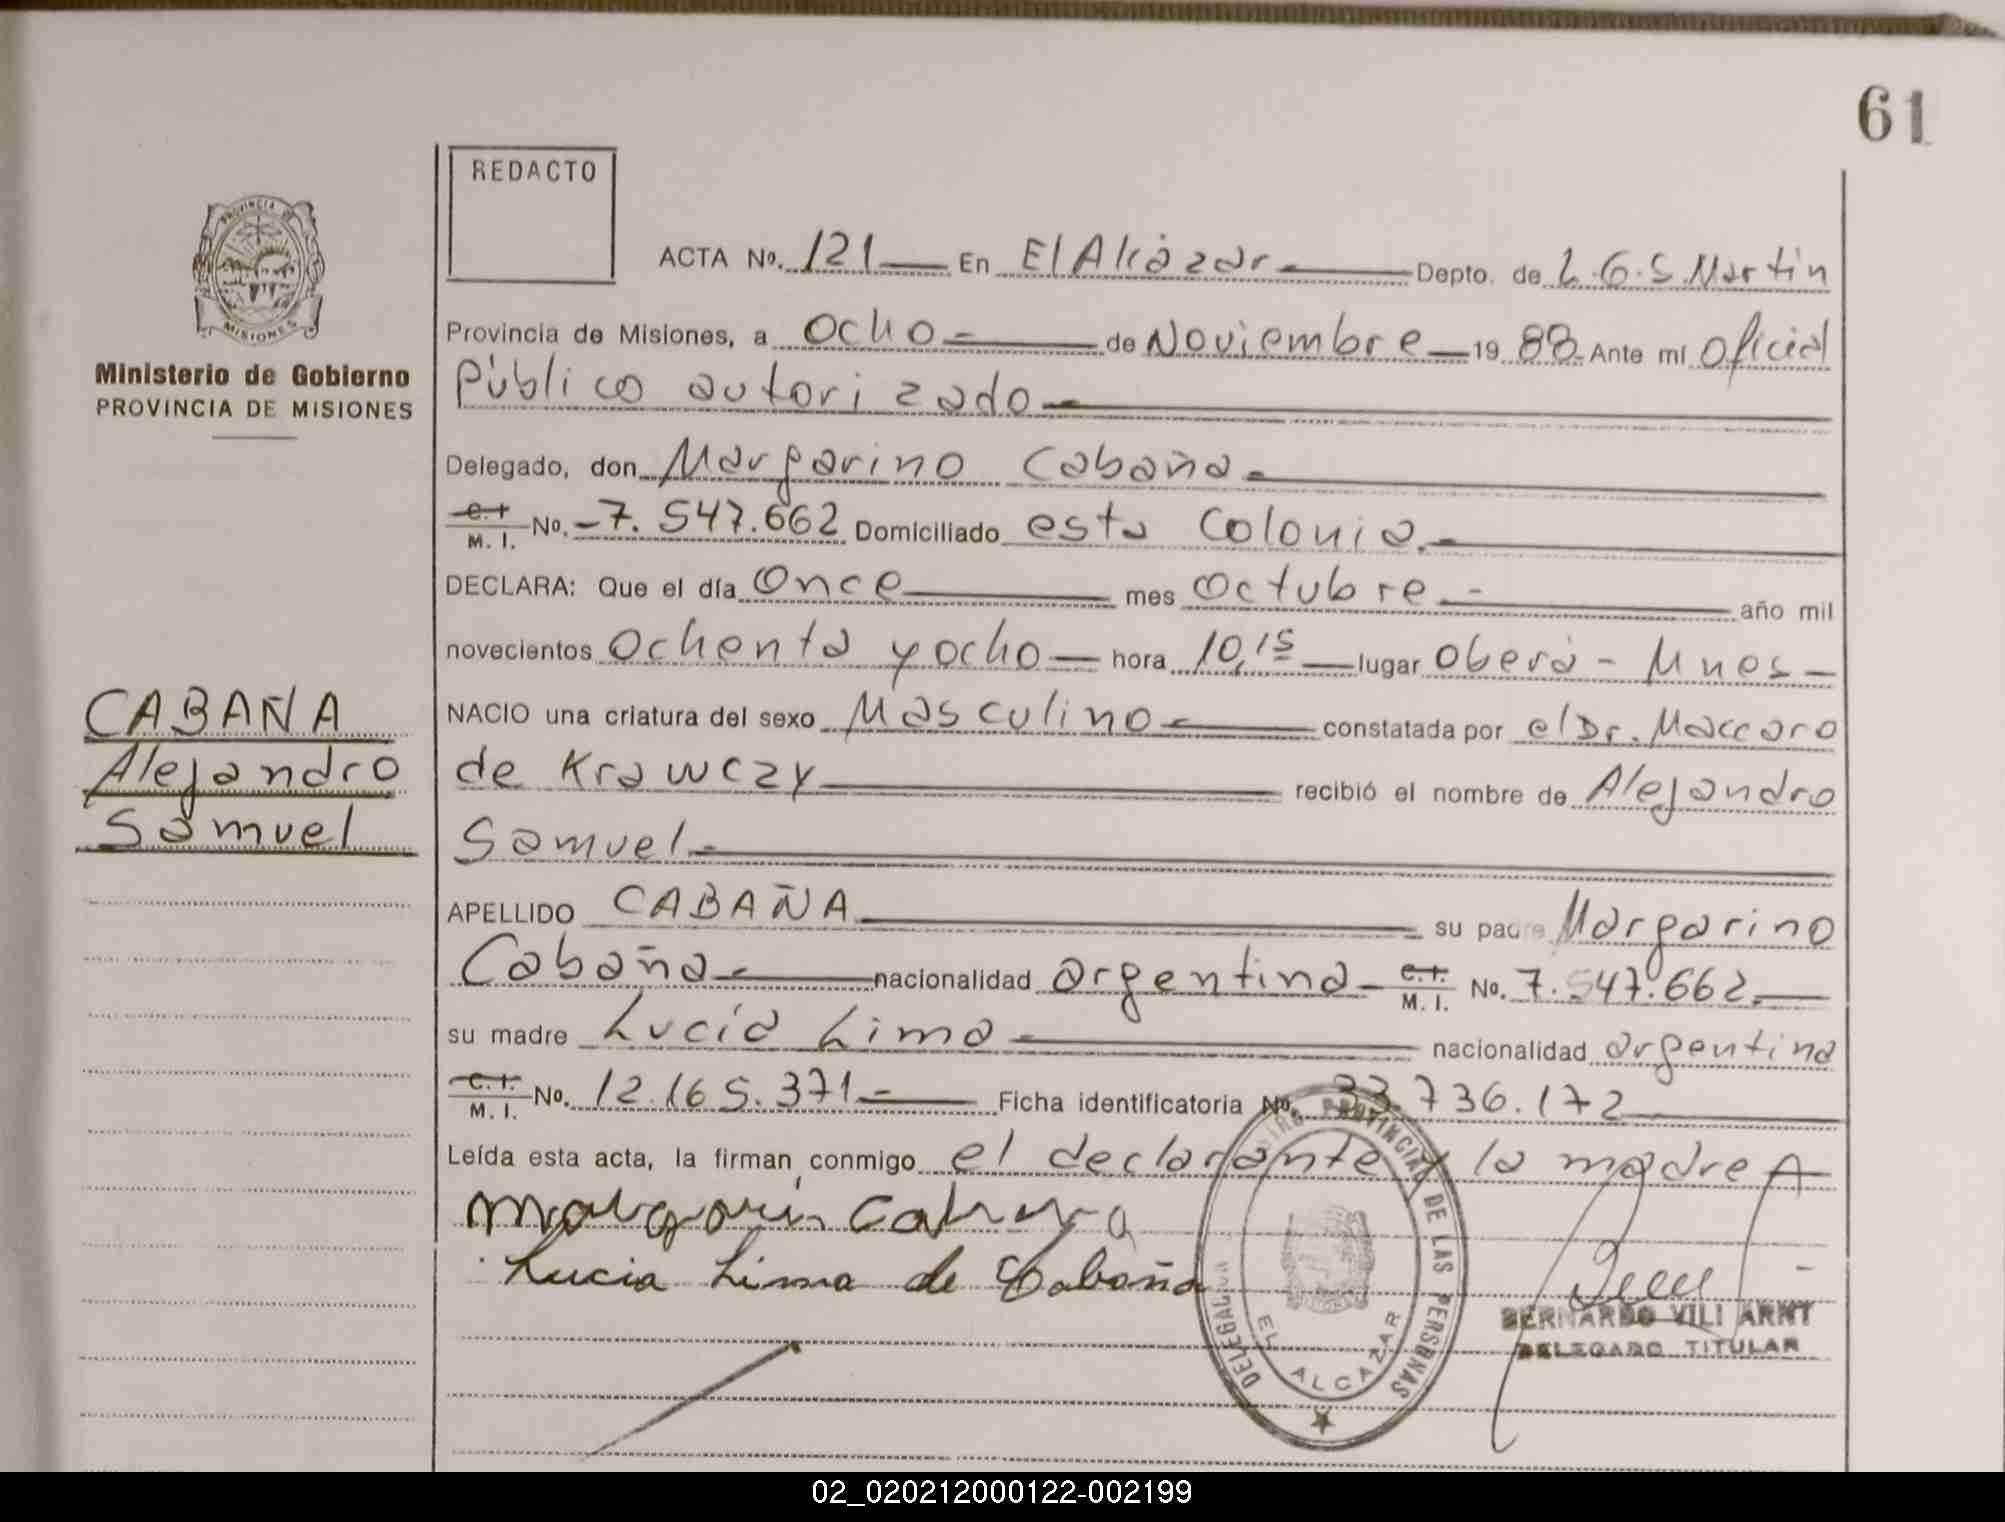 61
REDACTO
PROVINCIA DE
MISIONES
Ministerio de Gobierno
PROVINCIA DE MISIONES
CABAÑA
Alejandro
Samuel
ACTA No. 121 En El Alcázar Depto. de L.G.S. Martín
Provincia de Misiones, a ocho de Noviembre 1988 Ante mí Oficial
Público autorizado
Delegado, don Margarino Cabaña
C.I. M. I. No. 7.547.662 Domiciliado esta Colonia.
DECLARA: Que el día Once mes Octubre año mil
novecientos Ochenta y ocho hora 10,15 lugar Oberá - Mnes
NACIO una criatura del sexo Masculino constatada por el Dr. Maccaro
de Krawczy recibió el nombre de Alejandro
Samuel
APELLIDO CABAÑA su padre Margarino
Cabaña nacionalidad argentina C.I. M. I. No. 7.547.662
su madre Lucía Lima nacionalidad argentina
C.I. M. I. No. 12.165.371 Ficha identificatoria No. 33.736.172
Leída esta acta, la firman conmigo el declarante y la madre
Lucia Lima de Cabaña
PROVINCIAL DE LAS PERSONAS
DELEGACION
EL ALCAZAR
BERNARDO VILI ARNT
DELEGADO TITULAR
02_020212000122-002199